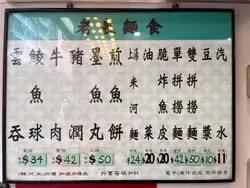 麵食
雲吞
鯪魚球
牛肉
豬潤
墨魚丸
煎餅
上湯米河麵
油菜
脆炸魚皮
單拼撈麵
雙拼撈麵
豆漿
汽水
$34
$42
$50
$24
$20
$20
$42
$50
$10
$11